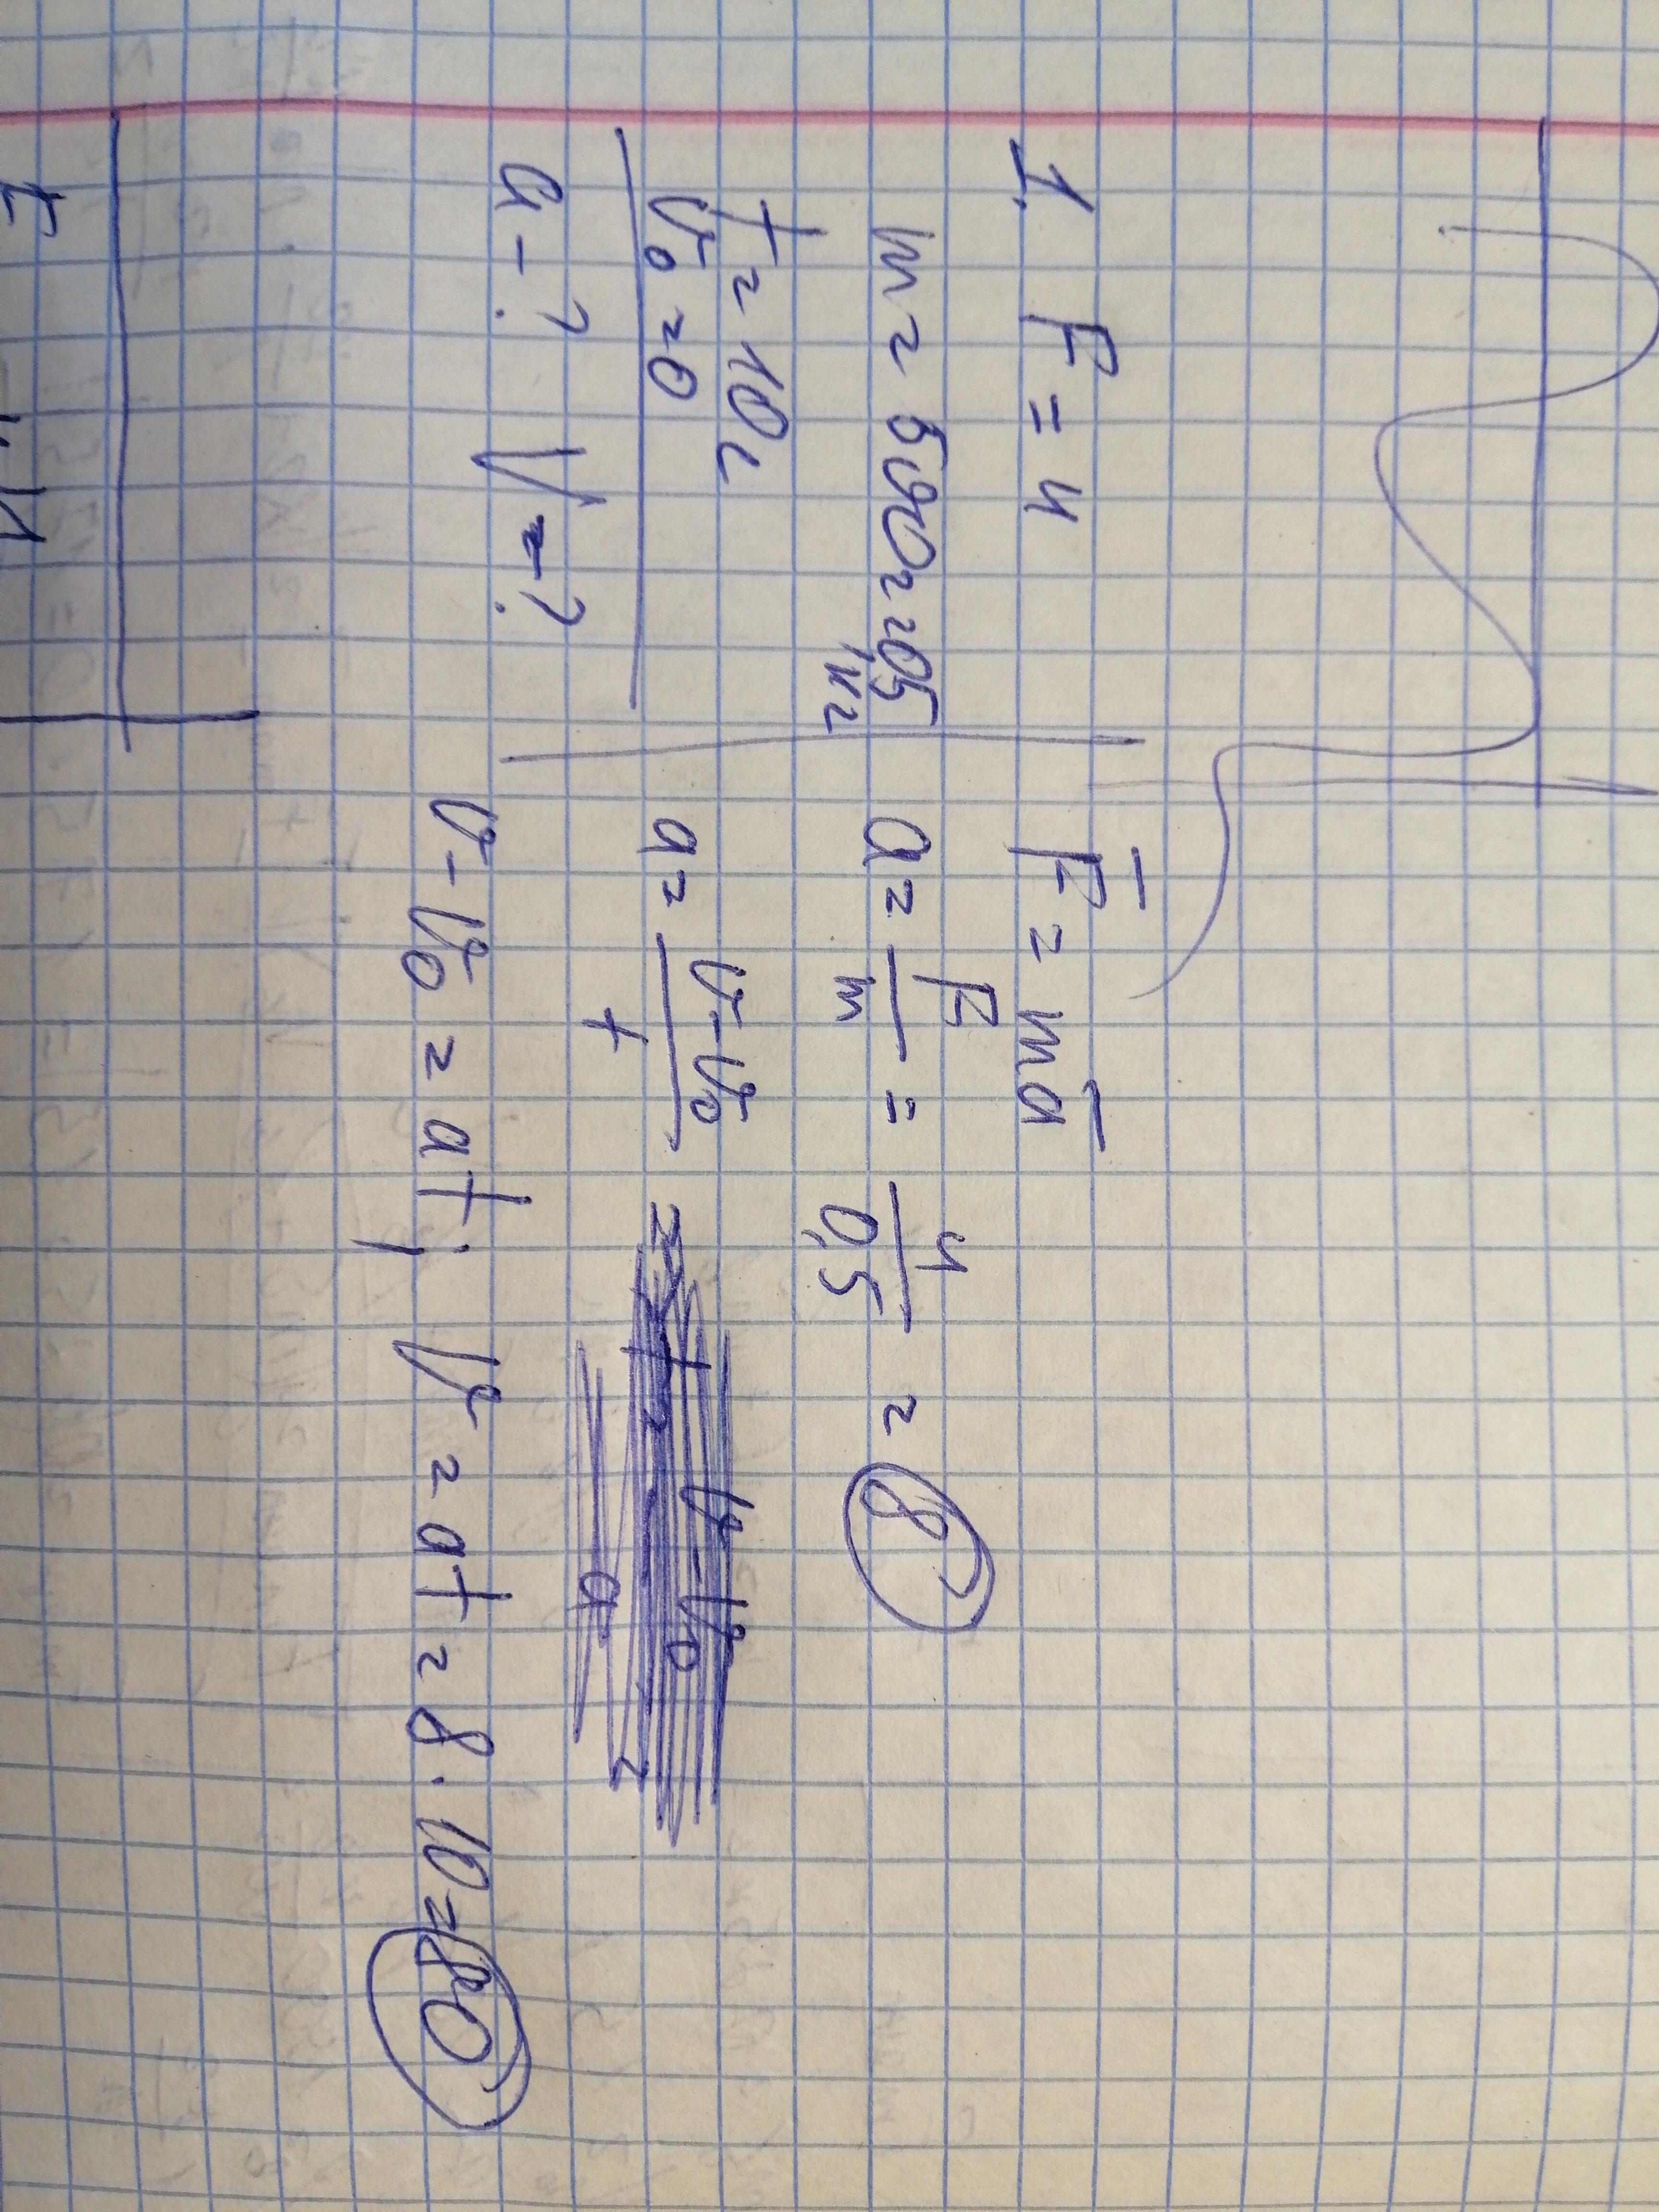 1. F = 4
m = 500г = 0,5
кг
t = 10с
v₀ = 0
a - ? V - ?
F = ma
a = F/m = 4/0,5 = 8
a = (v - v₀)/t
v - v₀ = at; v = at = 8 · 10 = 80